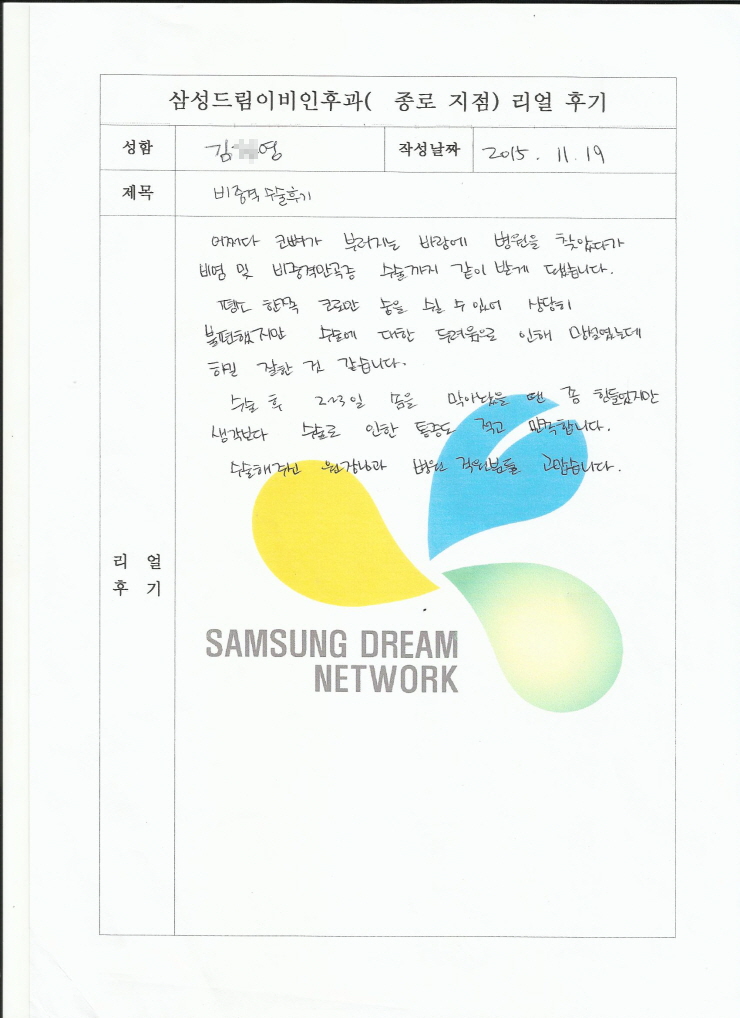 삼성드림이비인후과( 종로 지점) 리얼 후기
성함 김 영 작성날짜 2015. 11. 19
제목 비중격 수술후기
어쩌다 코뼈가 부러지는 바람에 병원을 찾았다가
비염 및 비중격만곡증 수술까지 같이 받게 됐습니다.
평소 한쪽 코로만 숨을 쉴 수 있어 상당히
불편했지만 수술에 대한 두려움으로 인해 망설였는데
하길 잘한 것 같습니다.
수술 후 2~3일 솜을 막아놨을 땐 좀 힘들었지만
생각보다 수술로 인한 통증도 적고 만족합니다.
수술해주신 원장님과 병원 직원분들 고맙습니다.
리 얼
후 기
SAMSUNG DREAM
NETWORK